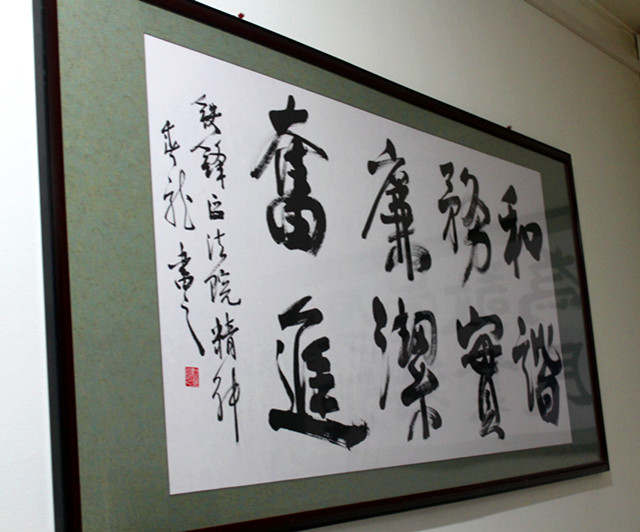 和諧
務實
廉潔
奮進
鐵鋒区法院精神
春龍書之